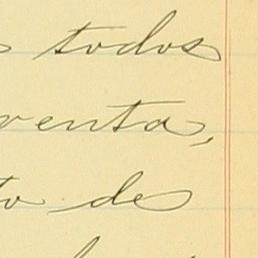 todos
venta,
to de